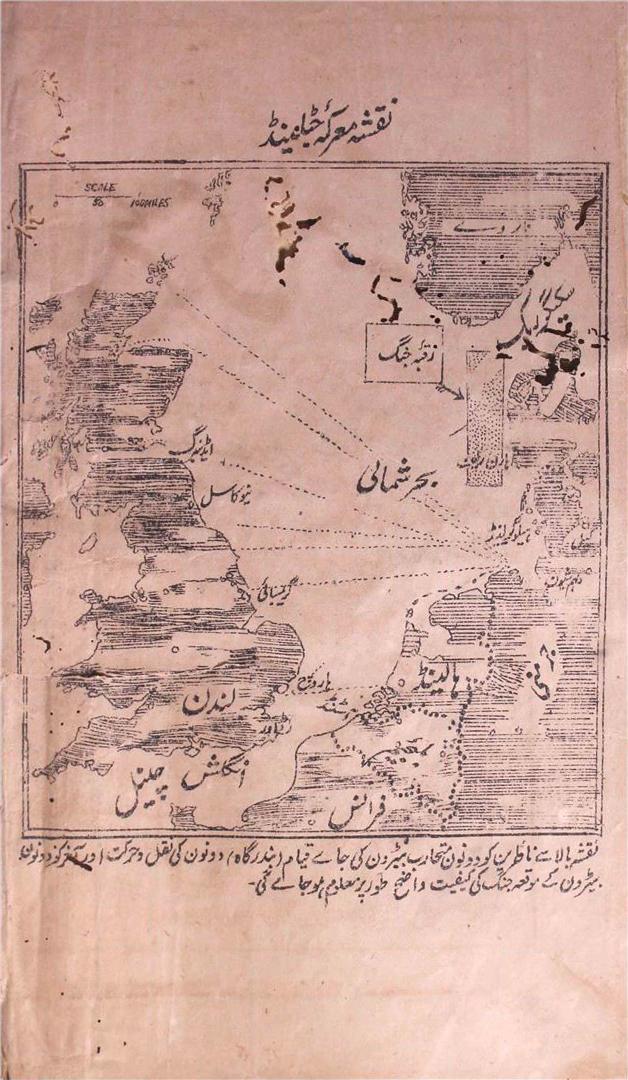 نقشہ معرکۂ جٹلینڈ
SCALE
50 100MILES
ناروے
سکیگراک
رقبۂ جنگ
ایڈنبرگ
بحر شمالی
نیوکاسل
ہیلوگولینڈ
گریمسبائی
جرمنی
ہالینڈ
لندن
انگلش چینل
فرانس
نقشہ بالا سے ناظرین کو دونون متحارب بیڑون کی جاے قیام (بندرگاہ) دونون کی نقل و حرکت اور آخر کو دونون
بیڑون کے موقعہ جنگ کی کیفیت واضح طور پر معلوم ہو جاے گی۔